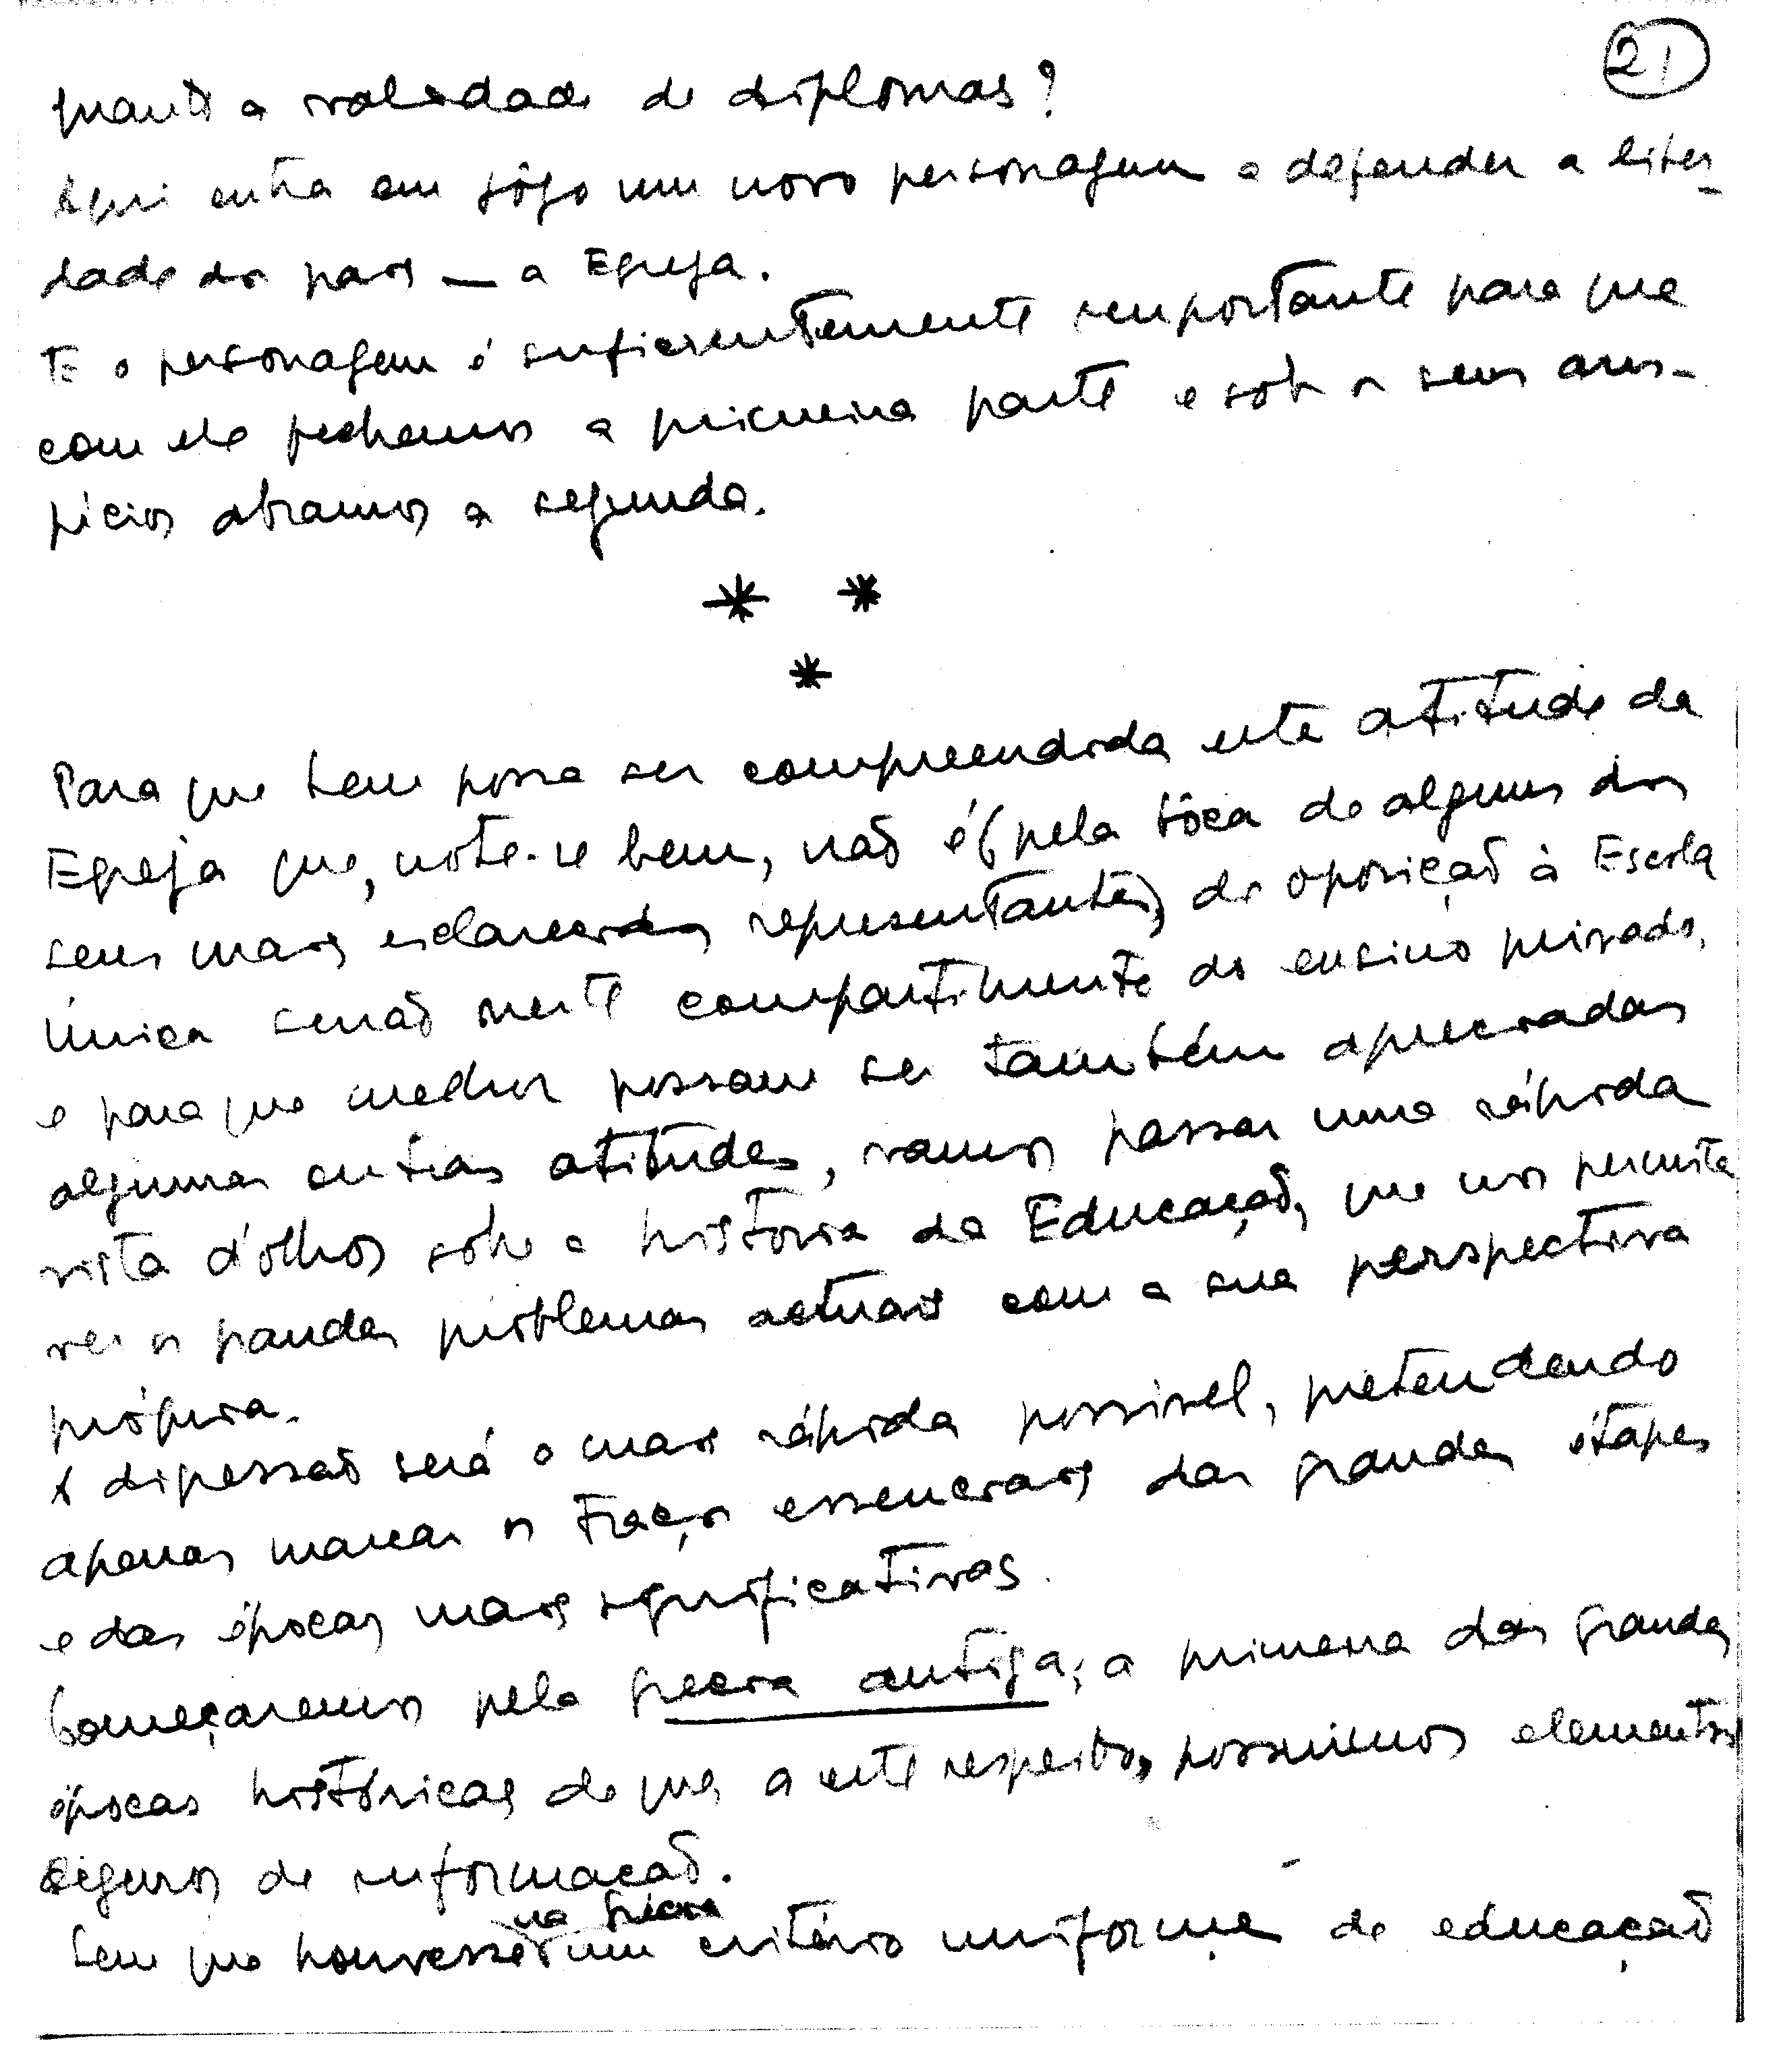 21
quanto a validade de diplomas?
Aqui entra em jôgo um novo personagem a defender a liber-
dade do país — a Egreja.
E o personagem é suficientemente importante para que
com ele fechemos a primeira parte e sob os seus aus-
pícios abramos a segunda.
* *
*
Para que bem possa ser compreendida esta atitude da
Egreja que, note-se bem, não é (pela bôca de alguns dos
seus mais esclarecidos representantes) de oposição à Escola
Única senão neste compartimento do ensino privado,
e para que melhor possam ser também apreciadas
algumas outras atitudes, vamos passar uma rápida
vista d'olhos sobre a história da Educação, que nos permita
ver os grandes problemas actuais com a sua perspectiva
própria.
A digressão será o mais rápida possivel, pretendendo
apenas marcar os traços essenciais das grandes étapes
e das épocas mais significativas.
Começaremos pela Grecia antiga, a primeira das grandes
épocas históricas de que, a este respeito, possuimos elementos
seguros de informação.
Sem que houvesse na Grécia um critério uniforme de educação